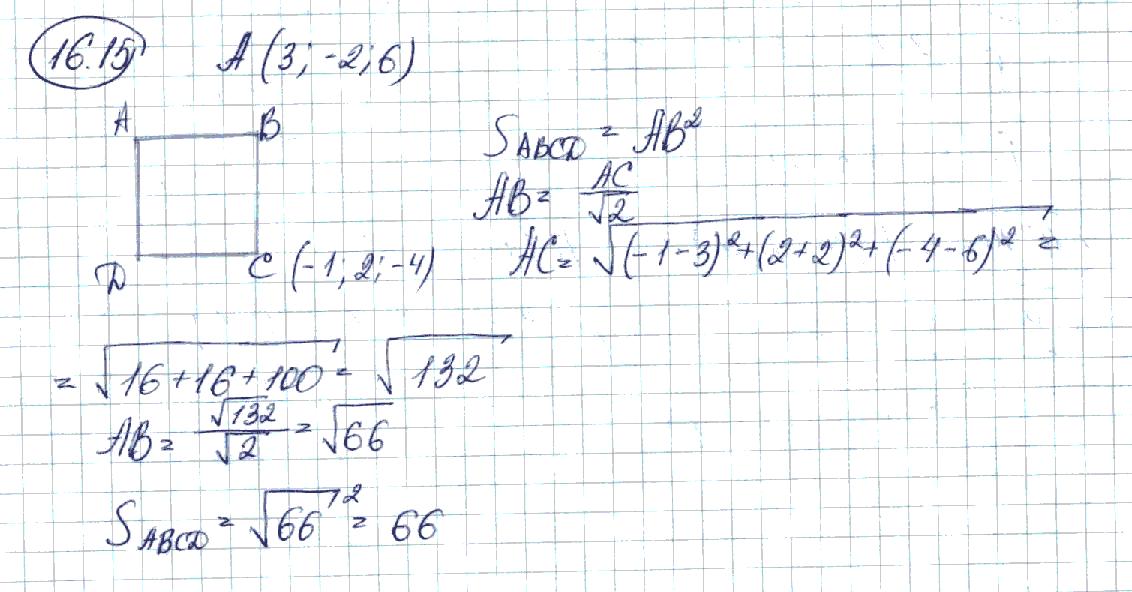 16.15 A (3; -2; 6)
A B
S_ABCD = AB²
AB = AC/√2
D C (-1; 2; -4) AC = √((-1-3)²+(2+2)²+(-4-6)²) =
= √(16+16+100) = √132
AB = √132/√2 = √66
S_ABCD = √66² = 66